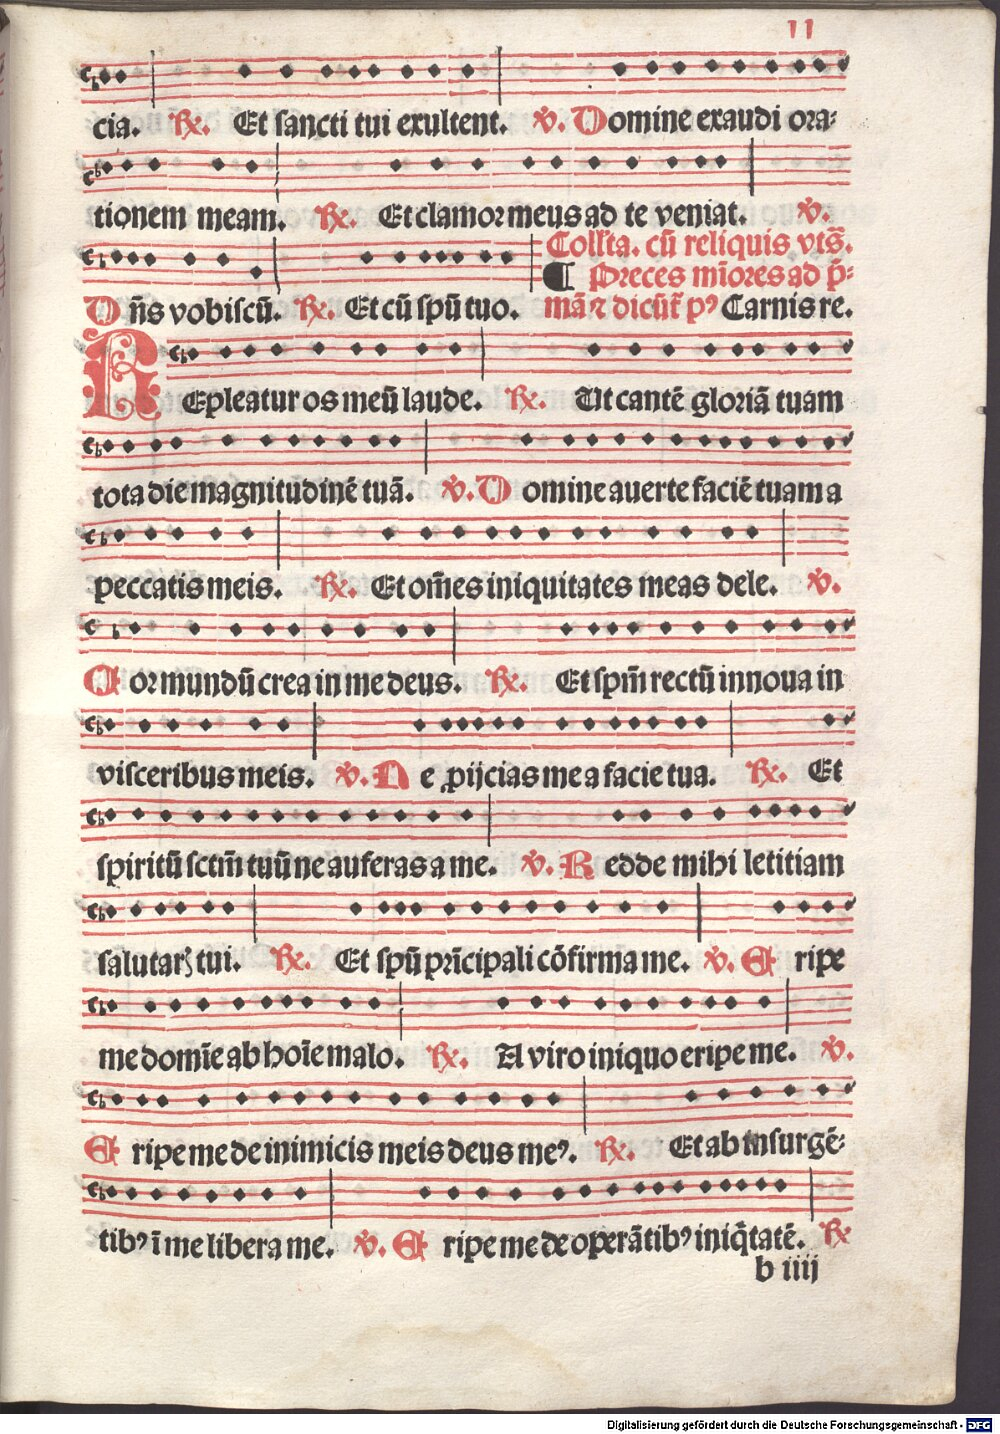 11
cia. ℟. Et sancti tui exultent. ℣. Domine exaudi ora⸗
tionem meam. ℟. Et clamor meus ad te veniat. ℣.
Collta. cū reliquis vts̄.
¶ Preces mīores ad p̄⸗
Dn̄s vobiscū. ℟. Et cū spū tuo. mā ⁊ dicūt̄ pꝰ Carnis re.
REpleatur os meū laude. ℟. Ut cantē gloriā tuam
tota die magnitudinē tuā. ℣. Domine auerte faciē tuam a
peccatis meis. ℟. Et om̄es iniquitates meas dele. ℣.
Cor mundū crea in me deus. ℟. Et spm̄ rectū innoua in
visceribus meis. ℣. Ne ꝓijcias me a facie tua. ℟. Et
spiritū sctm̄ tuū ne auferas a me. ℣. Redde mihi letitiam
salutarꝭ tui. ℟. Et spū prīcipali cōfirma me. ℣. Eripe
me domīe ab hoīe malo. ℟. A viro iniquo eripe me. ℣.
Eripe me de inimicis meis deus meꝰ. ℟. Et ab insurgē⸗
tibꝰ ī me libera me. ℣. Eripe me de operātibꝰ iniq̄tatē. ℟
b iiij
Digitalisierung gefördert durch die Deutsche Forschungsgemeinschaft - DFG